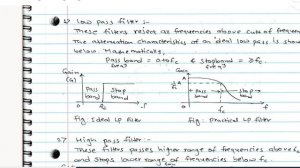 low pass filter :-
These filters reject as frequencies above cuts of freq
The attenuation characteristics of an ideal low pass is shown
below Mathematically,
Pass band = 0 to fc & stopband = > fc
Gain
(G)
Gain
Pass
band
Stop
band
Pass
band
Stop
band
fc
f
fc
f
Fig: Ideal LP filter
Fig: Practical LP filter
2) High pass filter :-
These filters passes higher range of frequencies above fc
and stops lower range of frequencies below fc